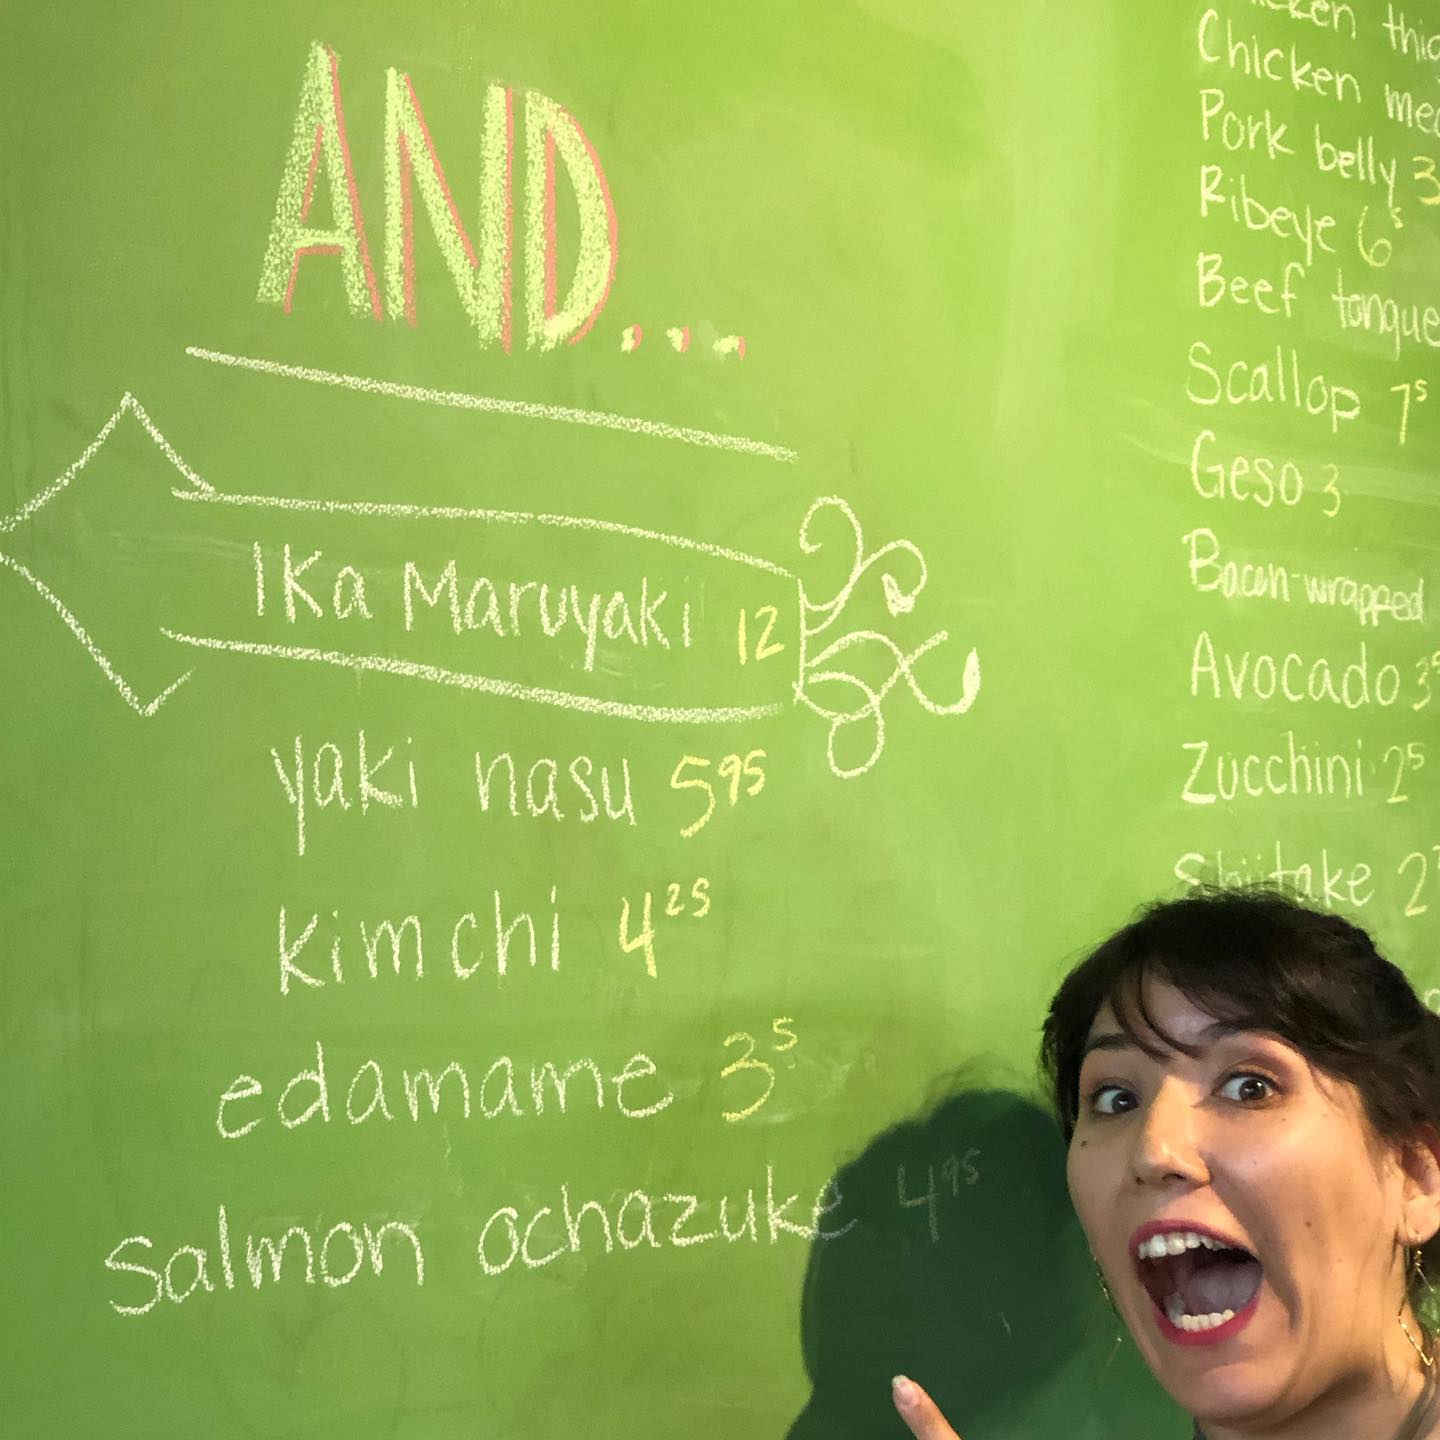 AND...
Ika Maruyaki 12
yaki nasu 5 95
kimchi 4 25
edamame 3 5
Salmon ochazuke 4 95
Chicken
Pork belly 3
Ribeye 6 5
Beef tongue
Scallop 7 5
Geso 3
Bacon-wrapped
Avocado 3 5
Zucchini 2 5
Shiitake 2